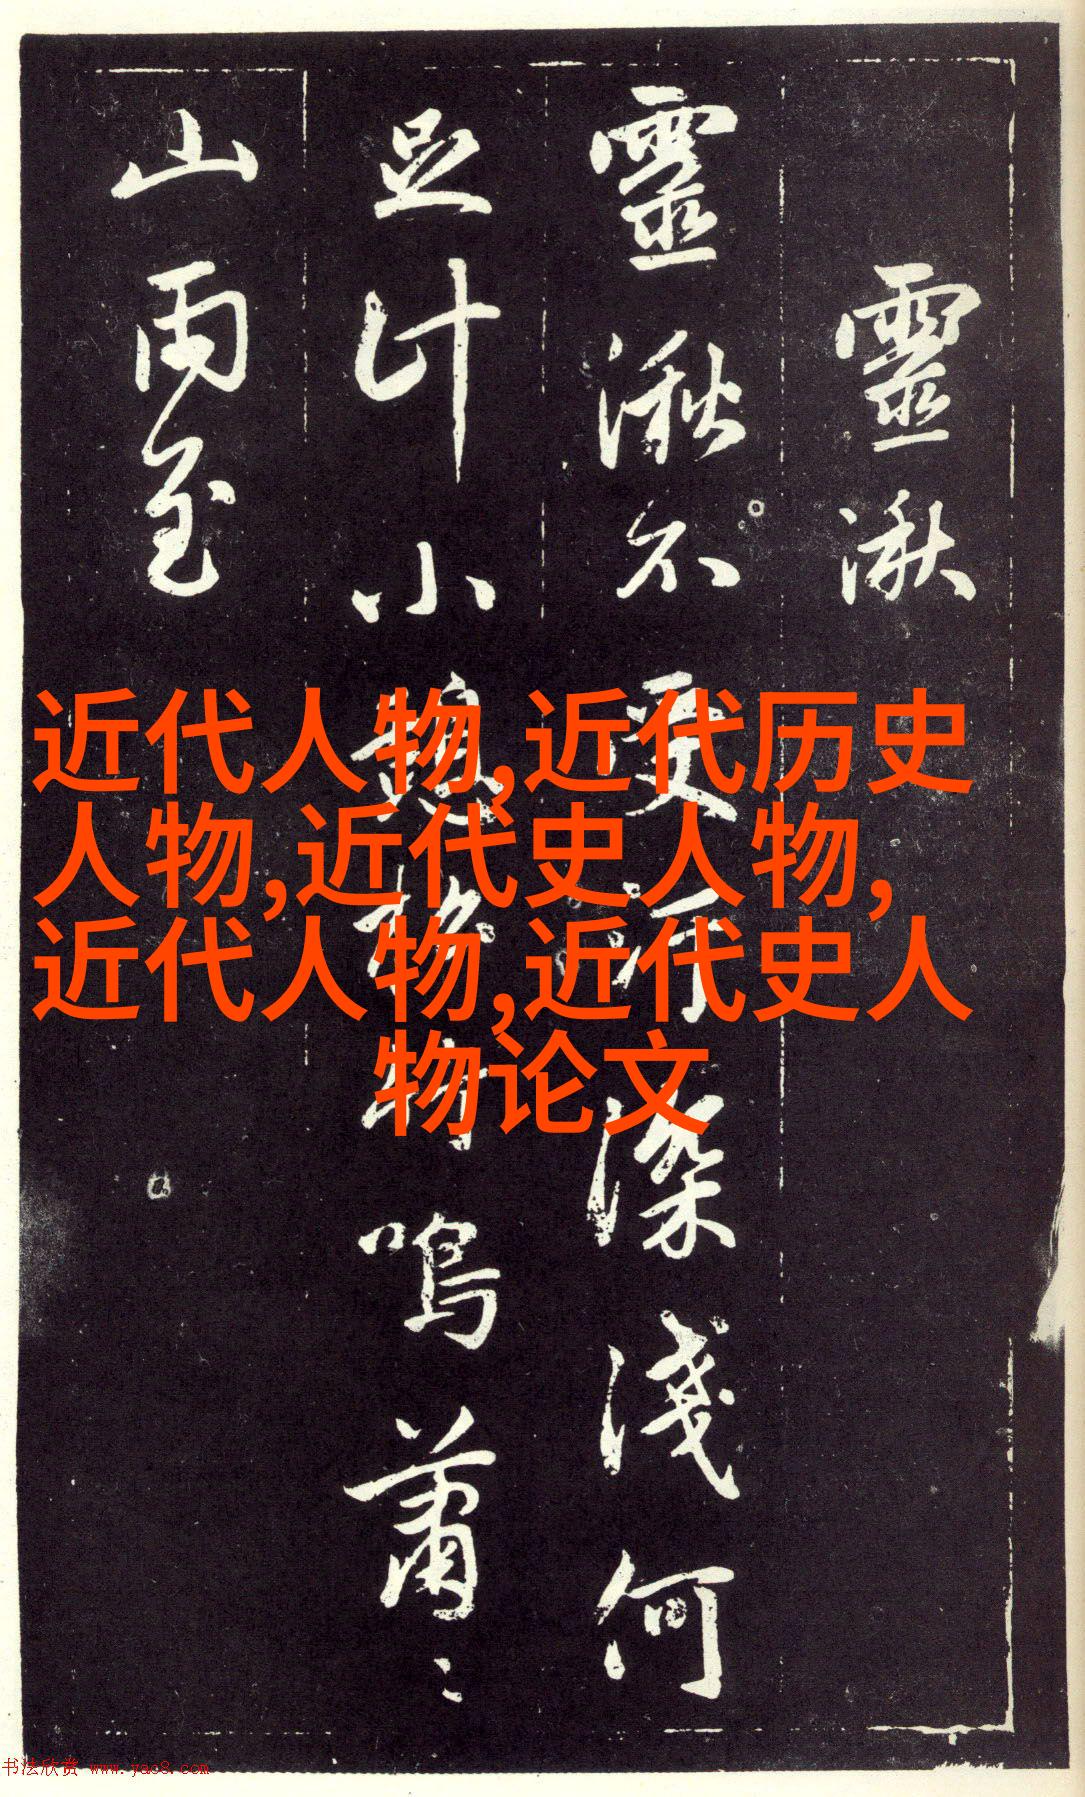 靈湫
靈湫不深淺何
足計小鳴蕭〻
山雨至
近代人物,近代历史
人物,近代史人物,
近代人物,近代史人
物论文
书法欣赏 www.yac8.com